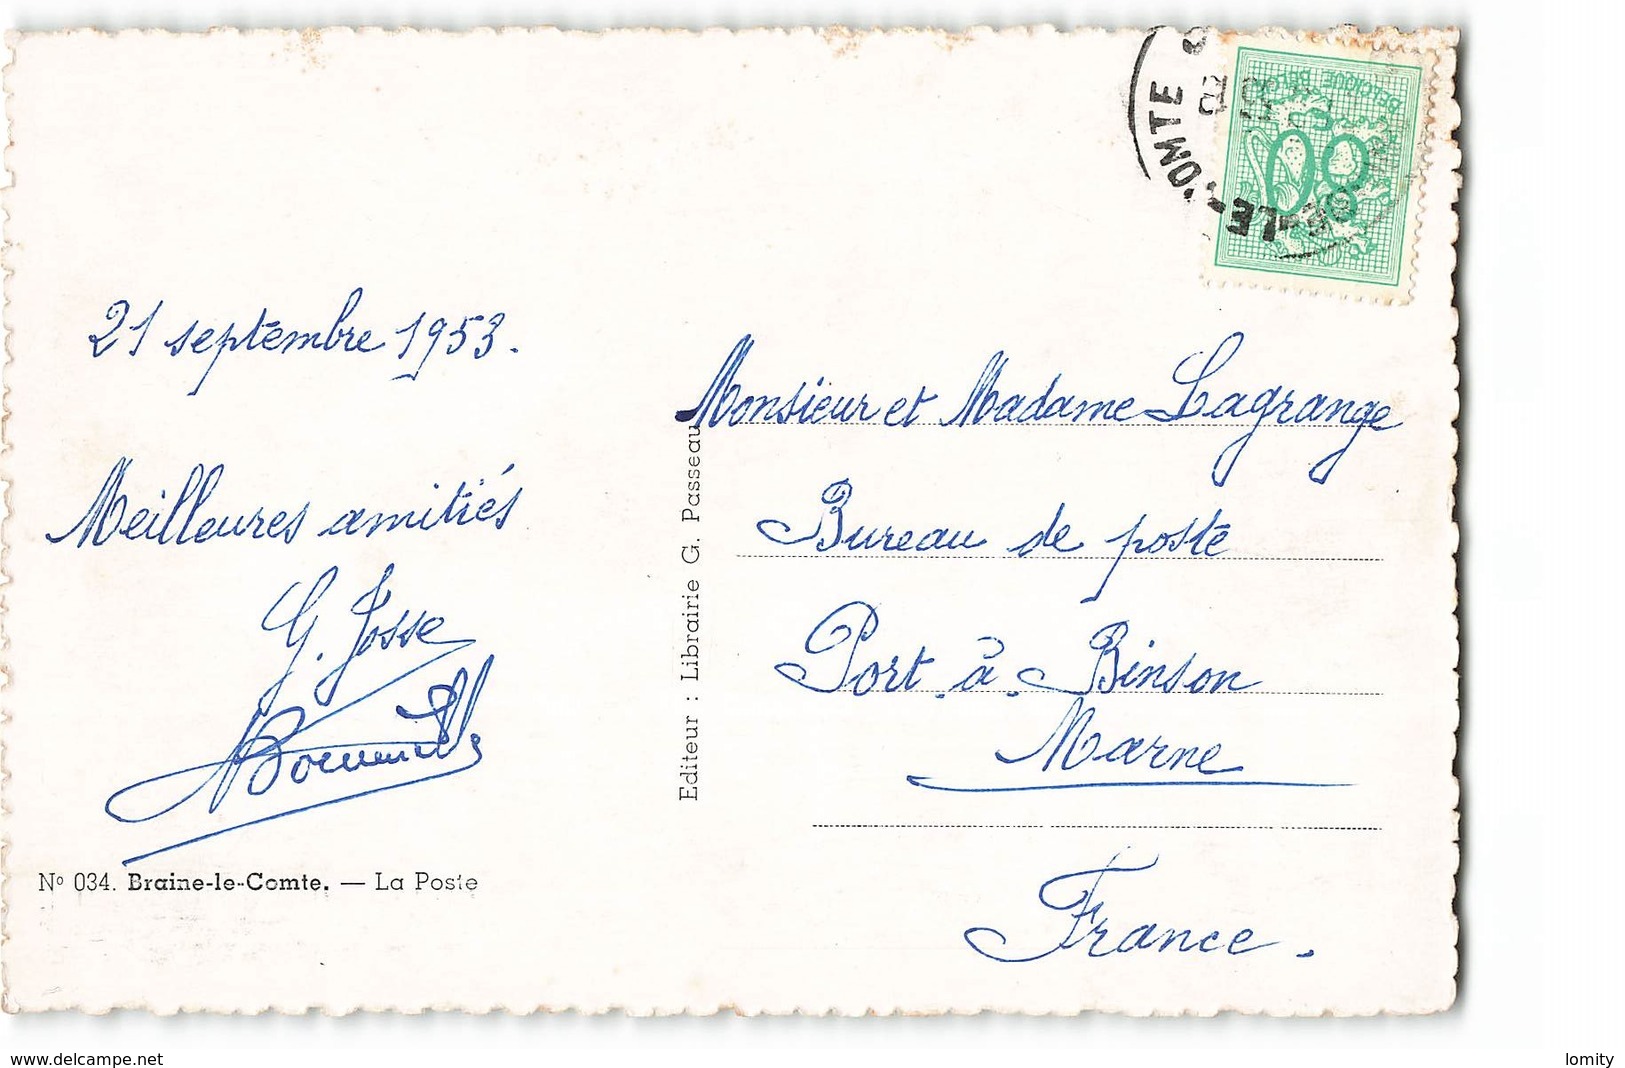 OMTE
E-LE-
BELGIQUE BELGIE
80
21 septembre 1953.
Meilleures amitiés
G. Josse
Monsieur et Madame Lagrange
Bureau de poste
Port-à-Binson
Marne
France.
Editeur : Librairie G. Passeau
Nº 034. Braine-le-Comte. — La Poste
www.delcampe.net
lomity